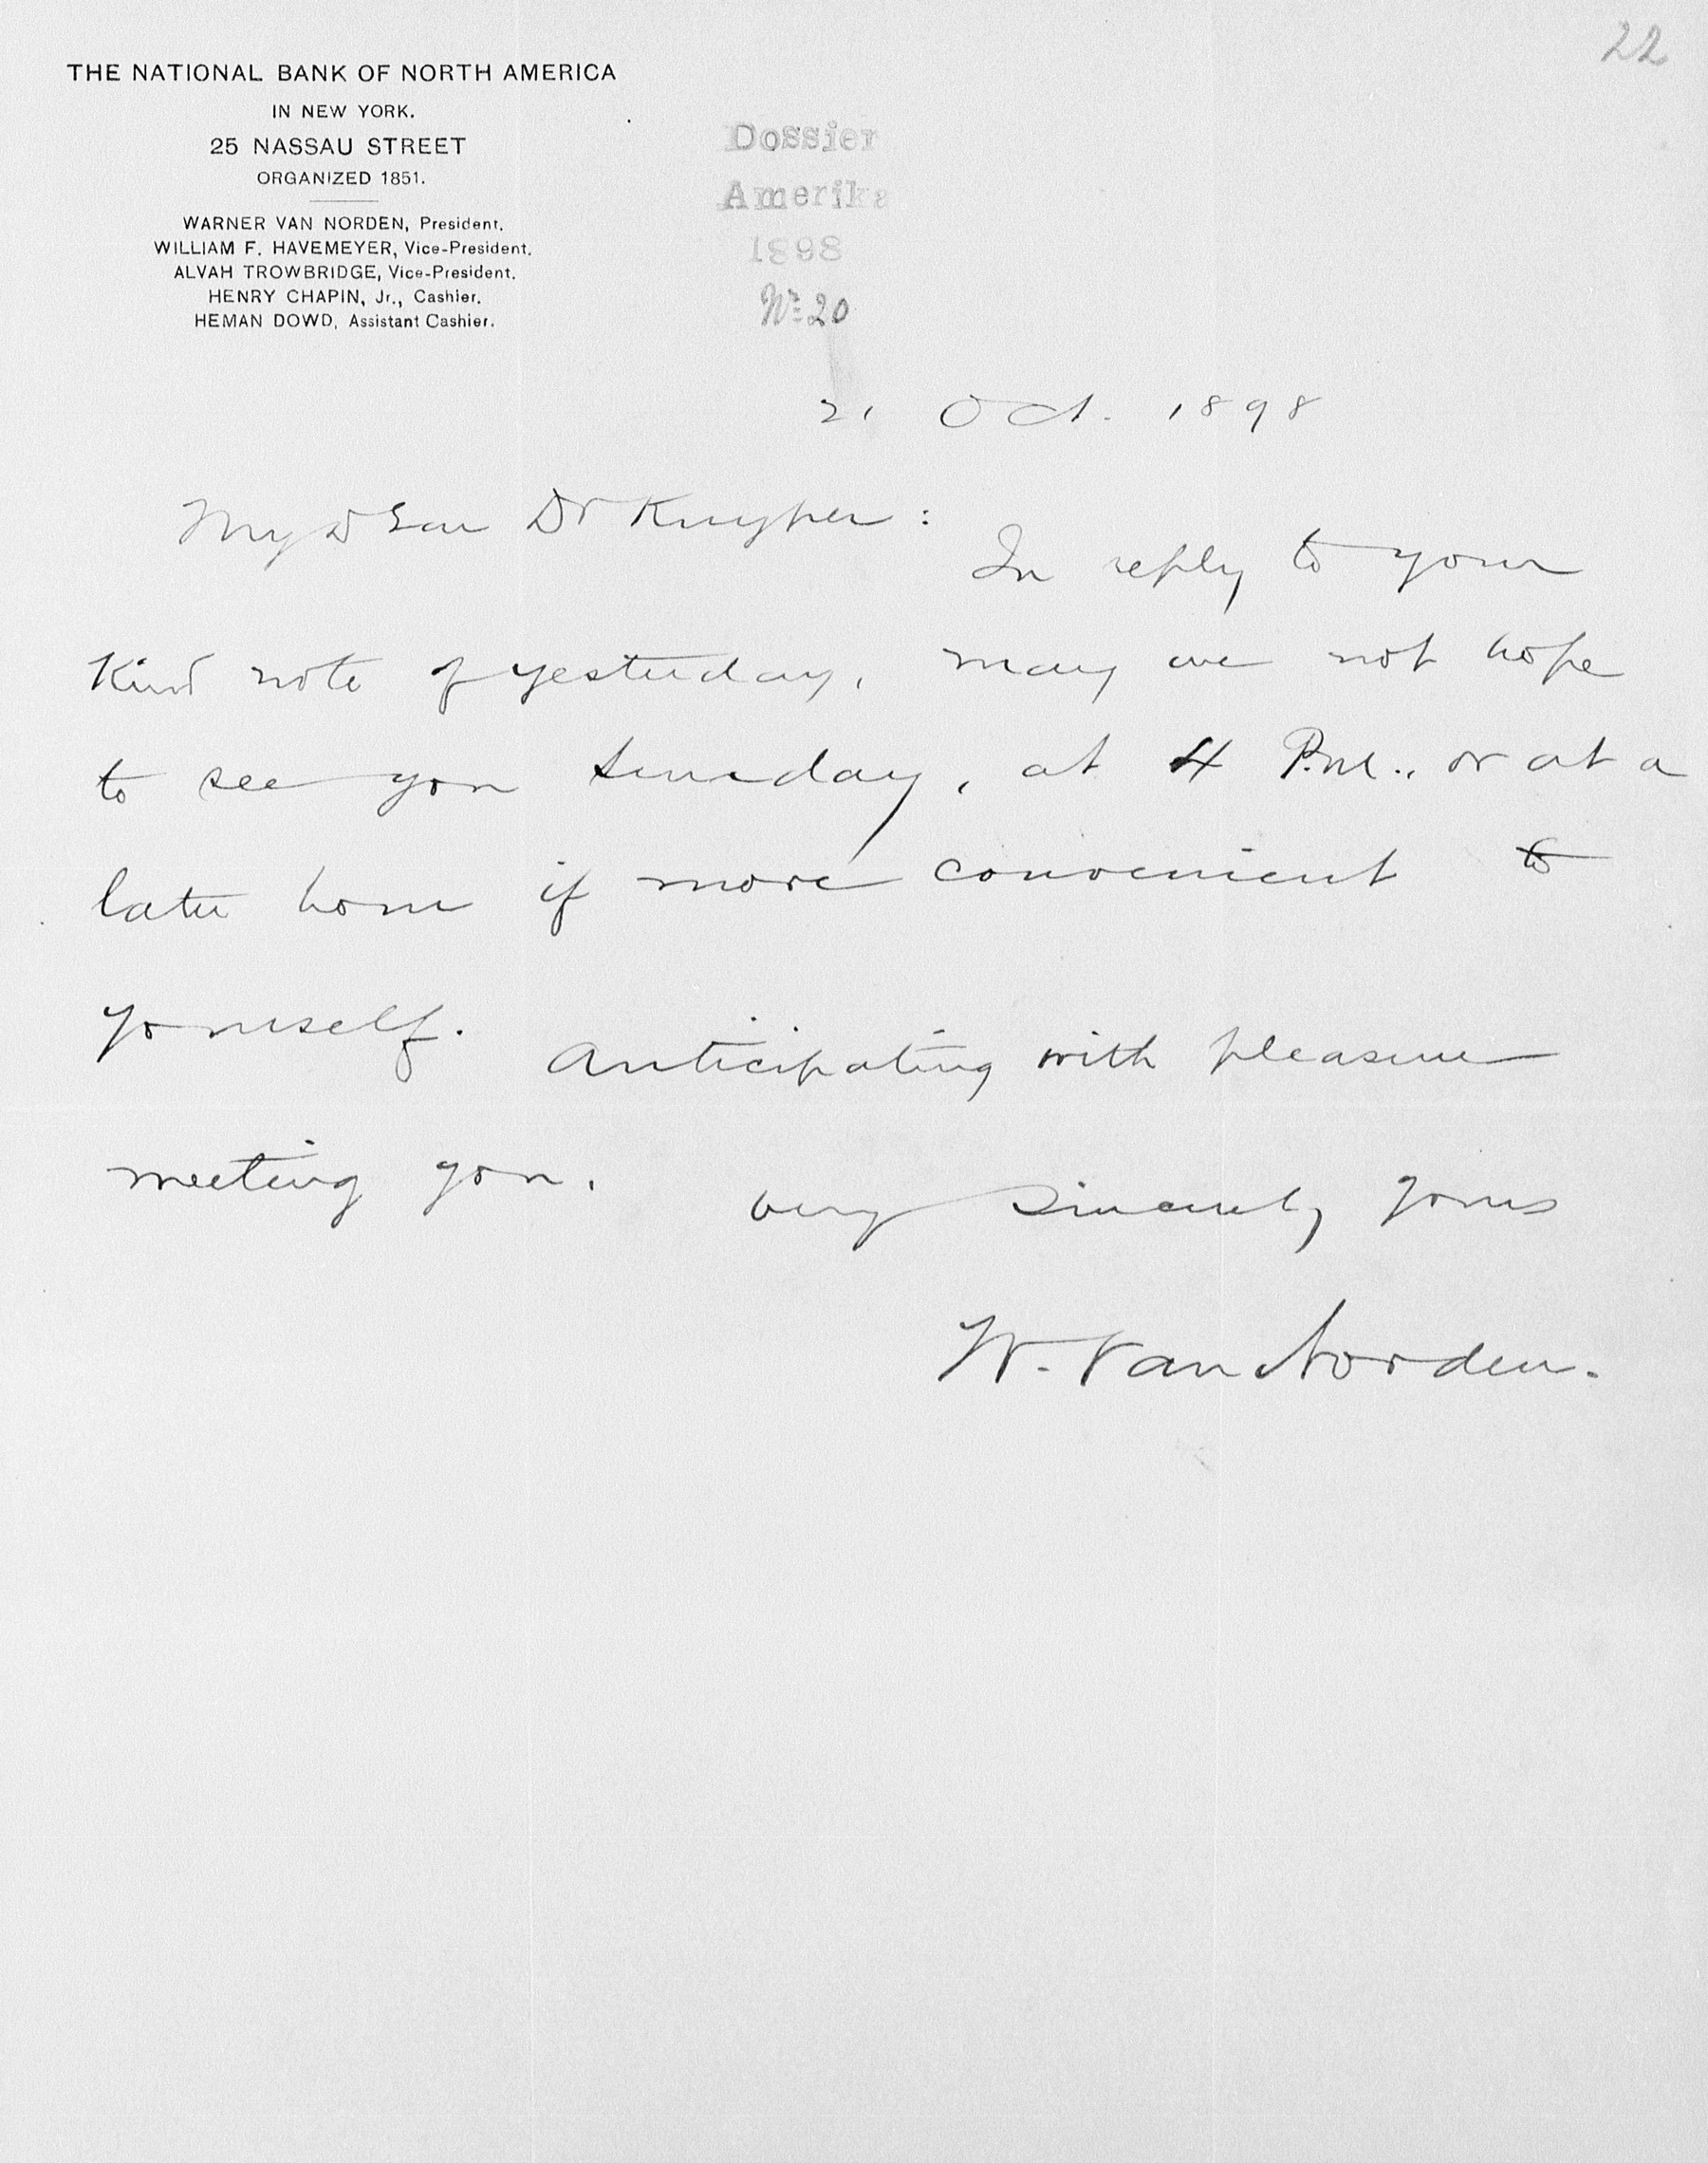 22
THE NATIONAL BANK OF NORTH AMERICA
IN NEW YORK.
25 NASSAU STREET
ORGANIZED 1851.
WARNER VAN NORDEN, President.
WILLIAM F. HAVEMEYER, Vice-President.
ALVAH TROWBRIDGE, Vice-President.
HENRY CHAPIN, Jr., Cashier.
HEMAN DOWD, Assistant Cashier.
Dossier
Amerika
1898
Nr 20
21 Oct. 1898
My Dear Dr Kuyper:
In reply to your
Kind note of yesterday, may we not hope
to see you Sunday, at 4 P.M., or at a
later hour if more convenient to
yourself. Anticipating with pleasure
meeting you.
Very Sincerely yours
W. Van Norden.